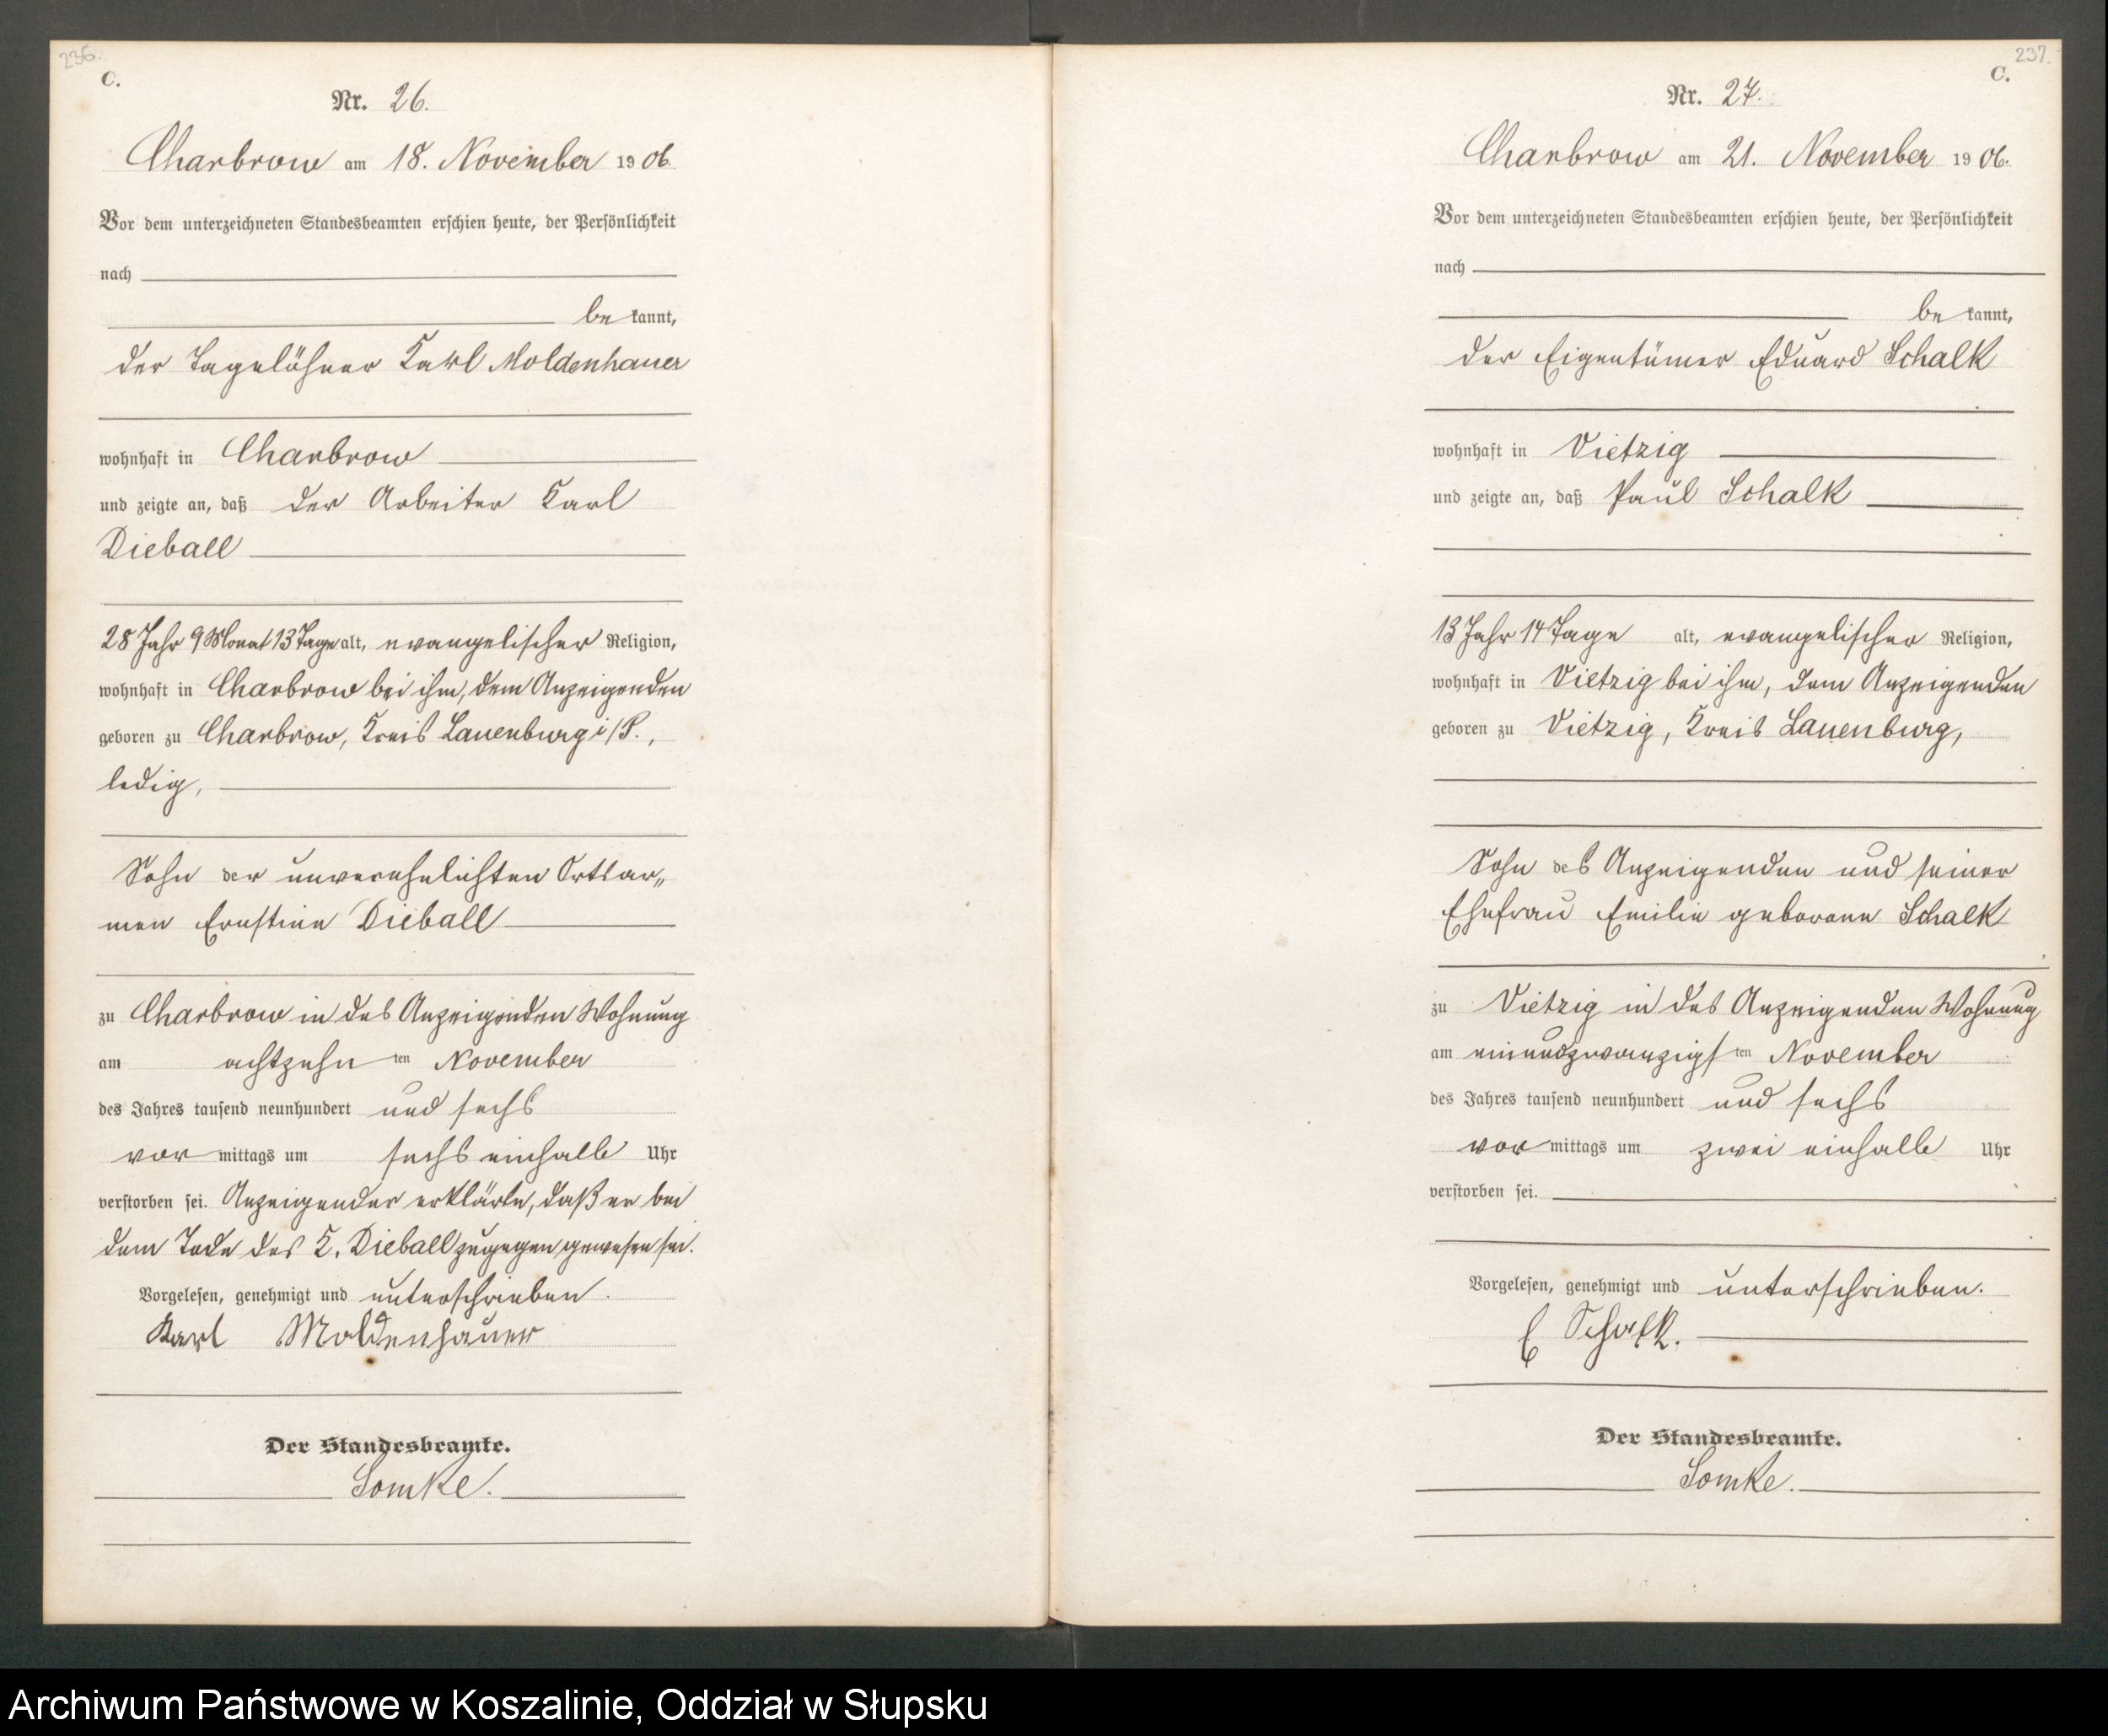 236.
C.
Nr. 26.
Charbrow am 18. November 1906.
Vor dem unterzeichneten Standesbeamten erschien heute, der Persönlichkeit
nach
be kannt,
der Tagelöhner Karl Moldenhauer
wohnhaft in Charbrow
und zeigte an, daß der Arbeiter Karl
Dieball
28 Jahr 9 Monat 13 Tage alt, evangelischer Religion,
wohnhaft in Charbrow bei ihm, dem Anzeigenden
geboren zu Charbrow, Kreis Lauenburg i/P.,
ledig,
Sohn der unverehelichten Ortsar„
men Ernstine Dieball
zu Charbrow in des Anzeigenden Wohnung
am achtzehn ten November
des Jahres tausend neunhundert und sechs
vor mittags um sechs einhalb Uhr
verstorben sei. Anzeigender erklärte, daß er bei
dem Tode des K. Dieball zugegen gewesen sei.
Vorgelesen, genehmigt und unterschrieben.
Karl Moldenhauer
Der Standesbeamte.
Somke.
237.
C.
Nr. 27.
Charbrow am 21. November 1906.
Vor dem unterzeichneten Standesbeamten erschien heute, der Persönlichkeit
nach
be kannt,
der Eigentümer Eduard Schalk
wohnhaft in Vietzig
und zeigte an, daß Paul Schalk
13 Jahr 14 Tage alt, evangelischer Religion,
wohnhaft in Vietzig bei ihm, dem Anzeigenden
geboren zu Vietzig, Kreis Lauenburg,
Sohn des Anzeigenden und seiner
Ehefrau Emilie geborene Schalk
zu Vietzig in des Anzeigenden Wohnung
am einundzwanzigs ten November
des Jahres tausend neunhundert und sechs
vor mittags um zwei einhalb Uhr
verstorben sei.
Vorgelesen, genehmigt und unterschrieben.
E Schalk.
Der Standesbeamte.
Somke.
Archiwum Państwowe w Koszalinie, Oddział w Słupsku